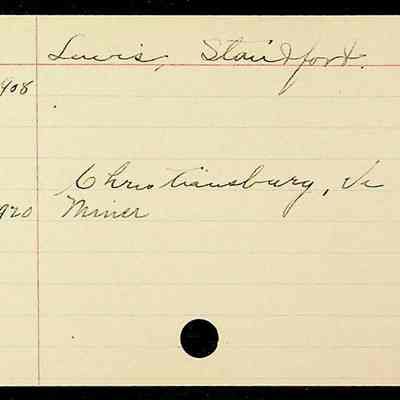 Lewis, Standford.
908
Christiansburg, Va
920 Miner